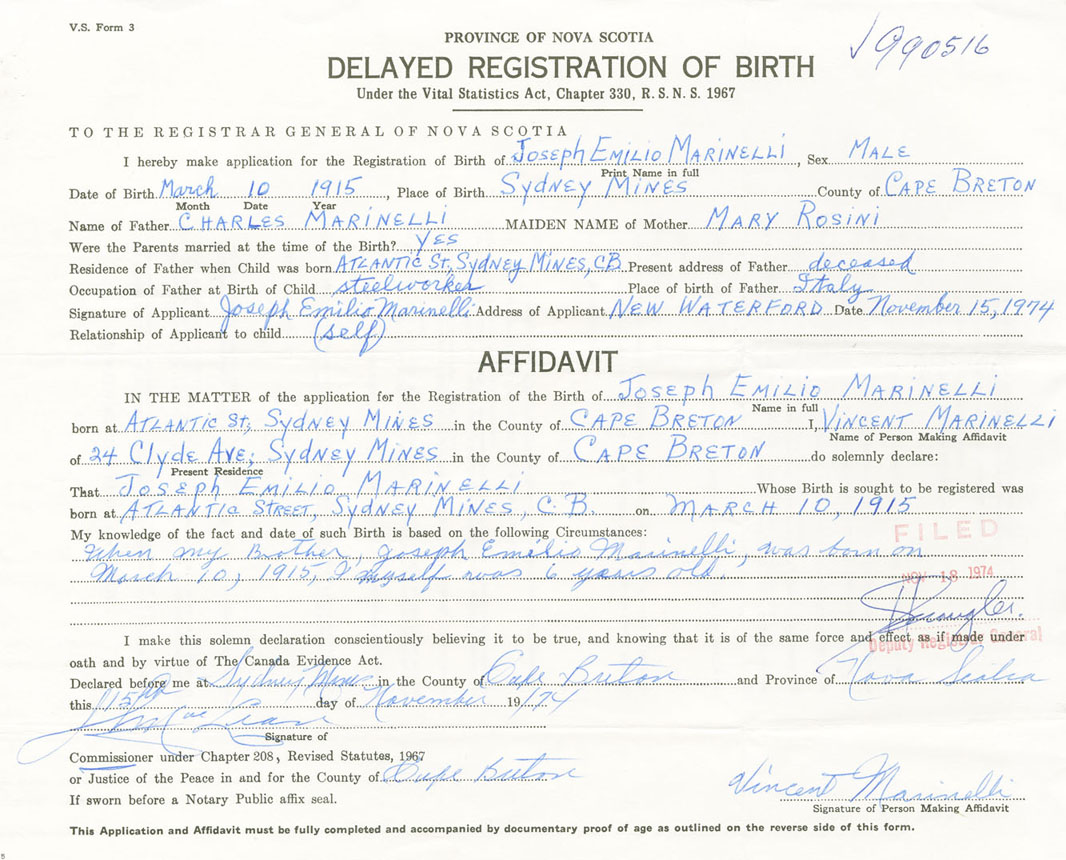 V.S. Form 3
990516
PROVINCE OF NOVA SCOTIA
DELAYED REGISTRATION OF BIRTH
Under the Vital Statistics Act, Chapter 330, R.S.N.S. 1967
TO THE REGISTRAR GENERAL OF NOVA SCOTIA
I hereby make application for the Registration of Birth of Joseph Emilio Marinelli, Sex Male
Print Name in full
Date of Birth March 10 1915, Place of Birth Sydney Mines County of Cape Breton
Month Date Year
Name of Father Charles Marinelli MAIDEN NAME of Mother Mary Rosini
Were the Parents married at the time of the Birth? yes
Residence of Father when Child was born Atlantic St, Sydney Mines, CB Present address of Father deceased
Occupation of Father at Birth of Child steelworker Place of birth of Father Italy
Signature of Applicant Joseph Emilio Marinelli Address of Applicant New Waterford Date November 15, 1974
Relationship of Applicant to child (self)
AFFIDAVIT
IN THE MATTER of the application for the Registration of the Birth of Joseph Emilio Marinelli
Name in full
born at Atlantic St, Sydney Mines in the County of Cape Breton I, Vincent Marinelli
Name of Person Making Affidavit
of 24 Clyde Ave, Sydney Mines in the County of Cape Breton do solemnly declare:
Present Residence
That Joseph Emilio Marinelli Whose Birth is sought to be registered was
born at Atlantic Street, Sydney Mines, C.B. on March 10, 1915
My knowledge of the fact and date of such Birth is based on the following Circumstances:
When my Brother, Joseph Emilio Marinelli, was born on
March 10, 1915, I myself was 6 years old.
FILED
NOV 18 1974
Deputy Registrar General
I make this solemn declaration conscientiously believing it to be true, and knowing that it is of the same force and effect as if made under
oath and by virtue of The Canada Evidence Act.
Declared before me at Sydney Mines in the County of Cape Breton and Province of Nova Scotia
this 15th day of November 1974
Signature of
Commissioner under Chapter 208, Revised Statutes, 1967
or Justice of the Peace in and for the County of Cape Breton
If sworn before a Notary Public affix seal.
Vincent Marinelli
Signature of Person Making Affidavit
This Application and Affidavit must be fully completed and accompanied by documentary proof of age as outlined on the reverse side of this form.